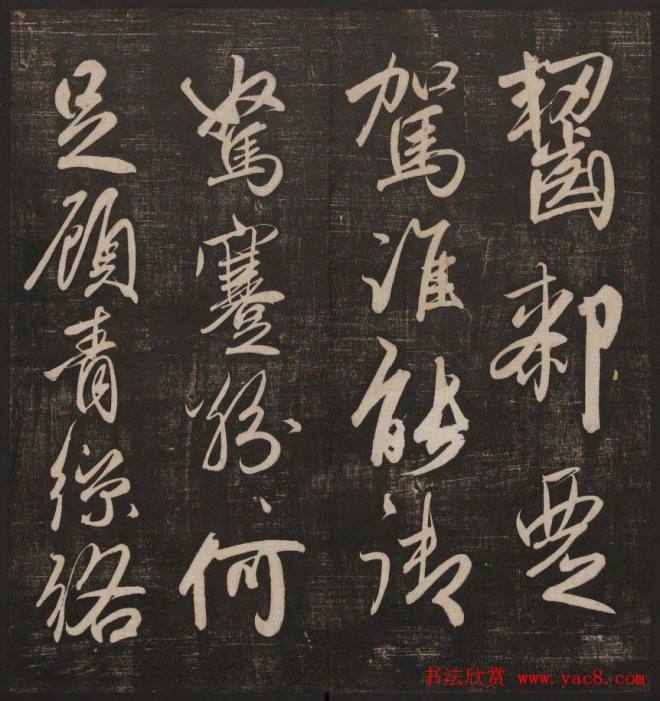 齧厀覂
駕誰能御
駑蹇紛何
足顧青絲絡
书法欣赏 www.yac8.com